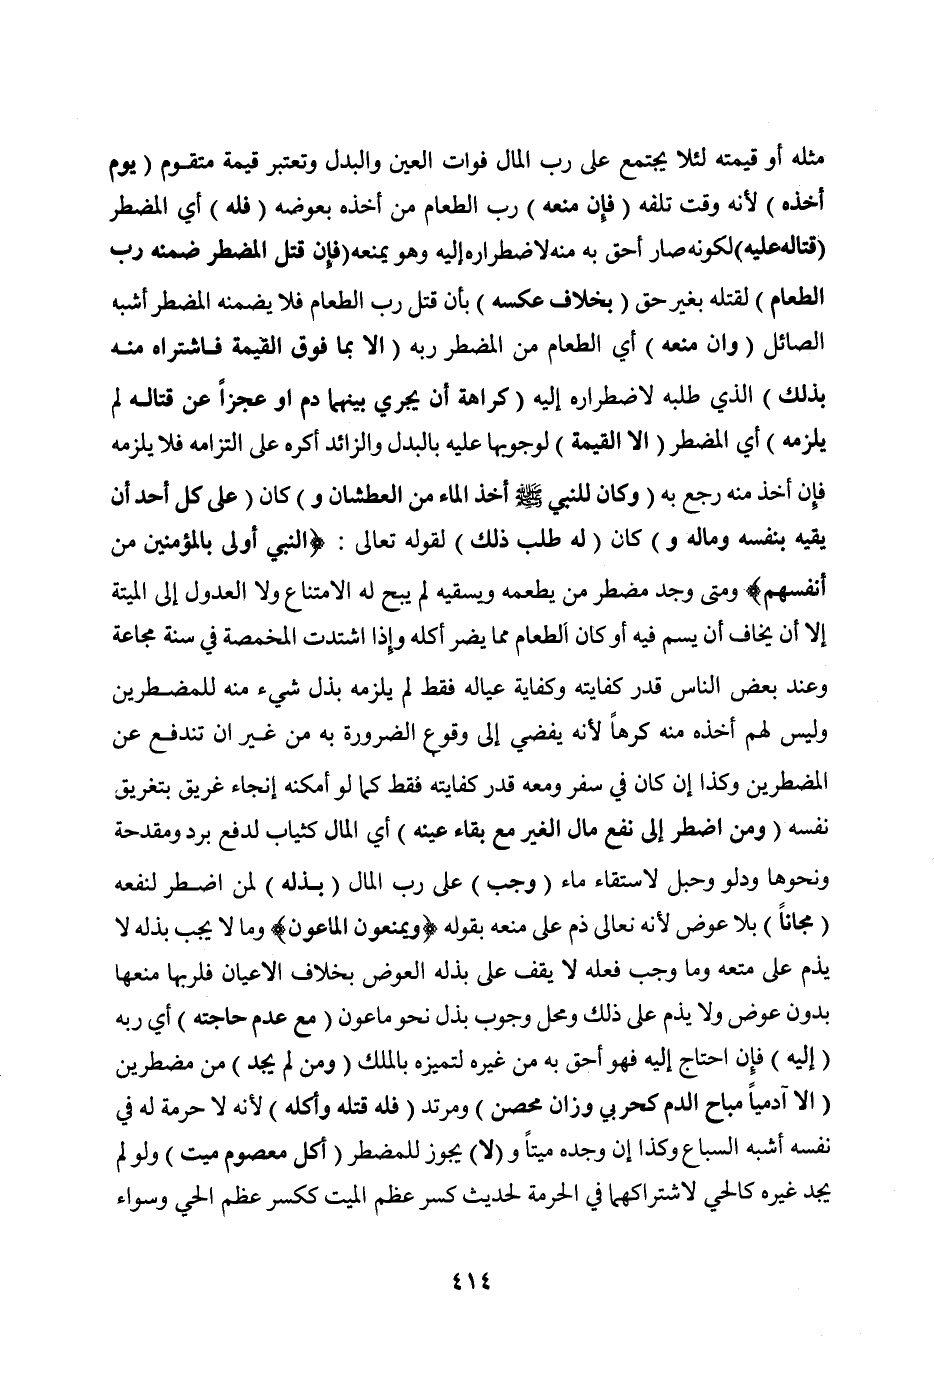 مثله أو قيمته لئلا يجتمع على رب المال فوات العين والبدل وتعتبر قيمة متقوم ( يوم
أخذه ) لأنه وقت تلفه ( فإن منعه ) رب الطعام من أخذه بعوضه ( فله ) أي المضطر
(قتاله عليه)لكونه صار أحق به منه لاضطراره إليه وهو يمنعه(فإن قتل المضطر ضمنه رب
الطعام ) لقتله بغير حق ( بخلاف عكسه ) بأن قتل رب الطعام فلا يضمنه المضطر أشبه
الصائل ( وان منعه ) أي الطعام من المضطر ربه ( الا بما فوق القيمة فاشتراه منه
بذلك ) الذي طلبه لاضطراره إليه ( كراهة أن يجري بينهما دم او عجزاً عن قتاله لم
يلزمه ) أي المضطر ( الا القيمة ) لوجوبها عليه بالبدل والزائد أكره على التزامه فلا يلزمه
فإن أخذ منه رجع به ( وكان للنبي ﷺ أخذ الماء من العطشان و ) كان ( على كل أحد أن
يقيه بنفسه وماله و ) كان ( له طلب ذلك ) لقوله تعالى : ﴿النبي أولى بالمؤمنين من
أنفسهم﴾ ومتى وجد مضطر من يطعمه ويسقيه لم يبح له الامتناع ولا العدول إلى الميتة
إلا أن يخاف أن يسم فيه أو كان الطعام مما يضر أكله وإذا اشتدت المخمصة في سنة مجاعة
وعند بعض الناس قدر كفايته وكفاية عياله فقط لم يلزمه بذل شيء منه للمضطرين
وليس لهم أخذه منه كرهاً لأنه يفضي إلى وقوع الضرورة به من غير ان تندفع عن
المضطرين وكذا إن كان في سفر ومعه قدر كفايته فقط كما لو أمكنه إنجاء غريق بتغريق
نفسه ( ومن اضطر إلى نفع مال الغير مع بقاء عينه ) أي المال كثياب لدفع برد ومقدحة
ونحوها ودلو وحبل لاستقاء ماء ( وجب ) على رب المال ( بذله ) لمن اضطر لنفعه
( مجاناً ) بلا عوض لأنه تعالى ذم على منعه بقوله ﴿ويمنعون الماعون﴾ وما لا يجب بذله لا
يذم على متعه وما وجب فعله لا يقف على بذله العوض بخلاف الاعيان فلربها منعها
بدون عوض ولا يذم على ذلك ومحل وجوب بذل نحو ماعون ( مع عدم حاجته ) أي ربه
( إليه ) فإن احتاج إليه فهو أحق به من غيره لتميزه بالملك ( ومن لم يجد ) من مضطرين
( الا آدمياً مباح الدم كحربي وزان محصن ) ومرتد ( فله قتله وأكله ) لأنه لا حرمة له في
نفسه أشبه السباع وكذا إن وجده ميتاً و (لا) يجوز للمضطر ( أكل معصوم ميت ) ولو لم
يجد غيره كالحي لاشتراكهما في الحرمة لحديث كسر عظم الميت ككسر عظم الحي وسواء
٤١٤